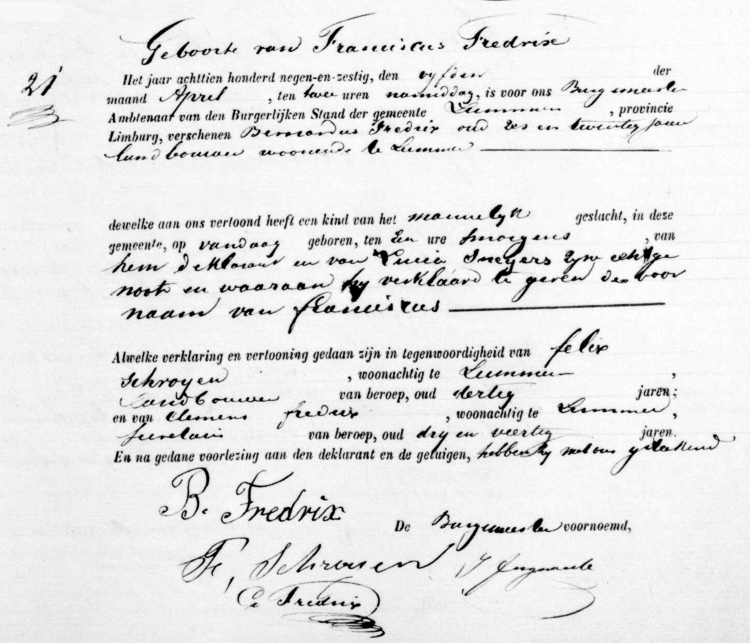 Geboorte van Franciscus Fredrix
21
Het jaar achttien honderd negen-en-zestig, den vyfden der
maand April , ten twee uren namiddag, is voor ons Burgmeester
Ambtenaar van den Burgerlijken Stand der gemeente Lummen , provincie
Limburg, verschenen Bernardus Fredrix oud zes en twintig jaren
landbouwer woonende te Lummen
dewelke aan ons vertoond heeft een kind van het mannelyk geslacht, in deze
gemeente, op vandaag geboren, ten Een ure smorgens , van
hem deklarant en van Lucia Sneyers zyne echtge
noot en waaraan hy verklaard te geven den voor
naam van franciscus
Alwelke verklaring en vertooning gedaan zijn in tegenwoordigheid van felix
Schroyen , woonachtig te Lummen ,
Landbouwer van beroep, oud dertig jaren;
en van Clemens fredrix , woonachtig te Lummen ,
Secretaris van beroep, oud dry en veertig jaren.
En na gedane voorlezing aan den deklarant en de getuigen, hebben zy met ons geteekend
B. Fredrix
De Burgemeester voornoemd,
F, Schroyen
C. Fredrix